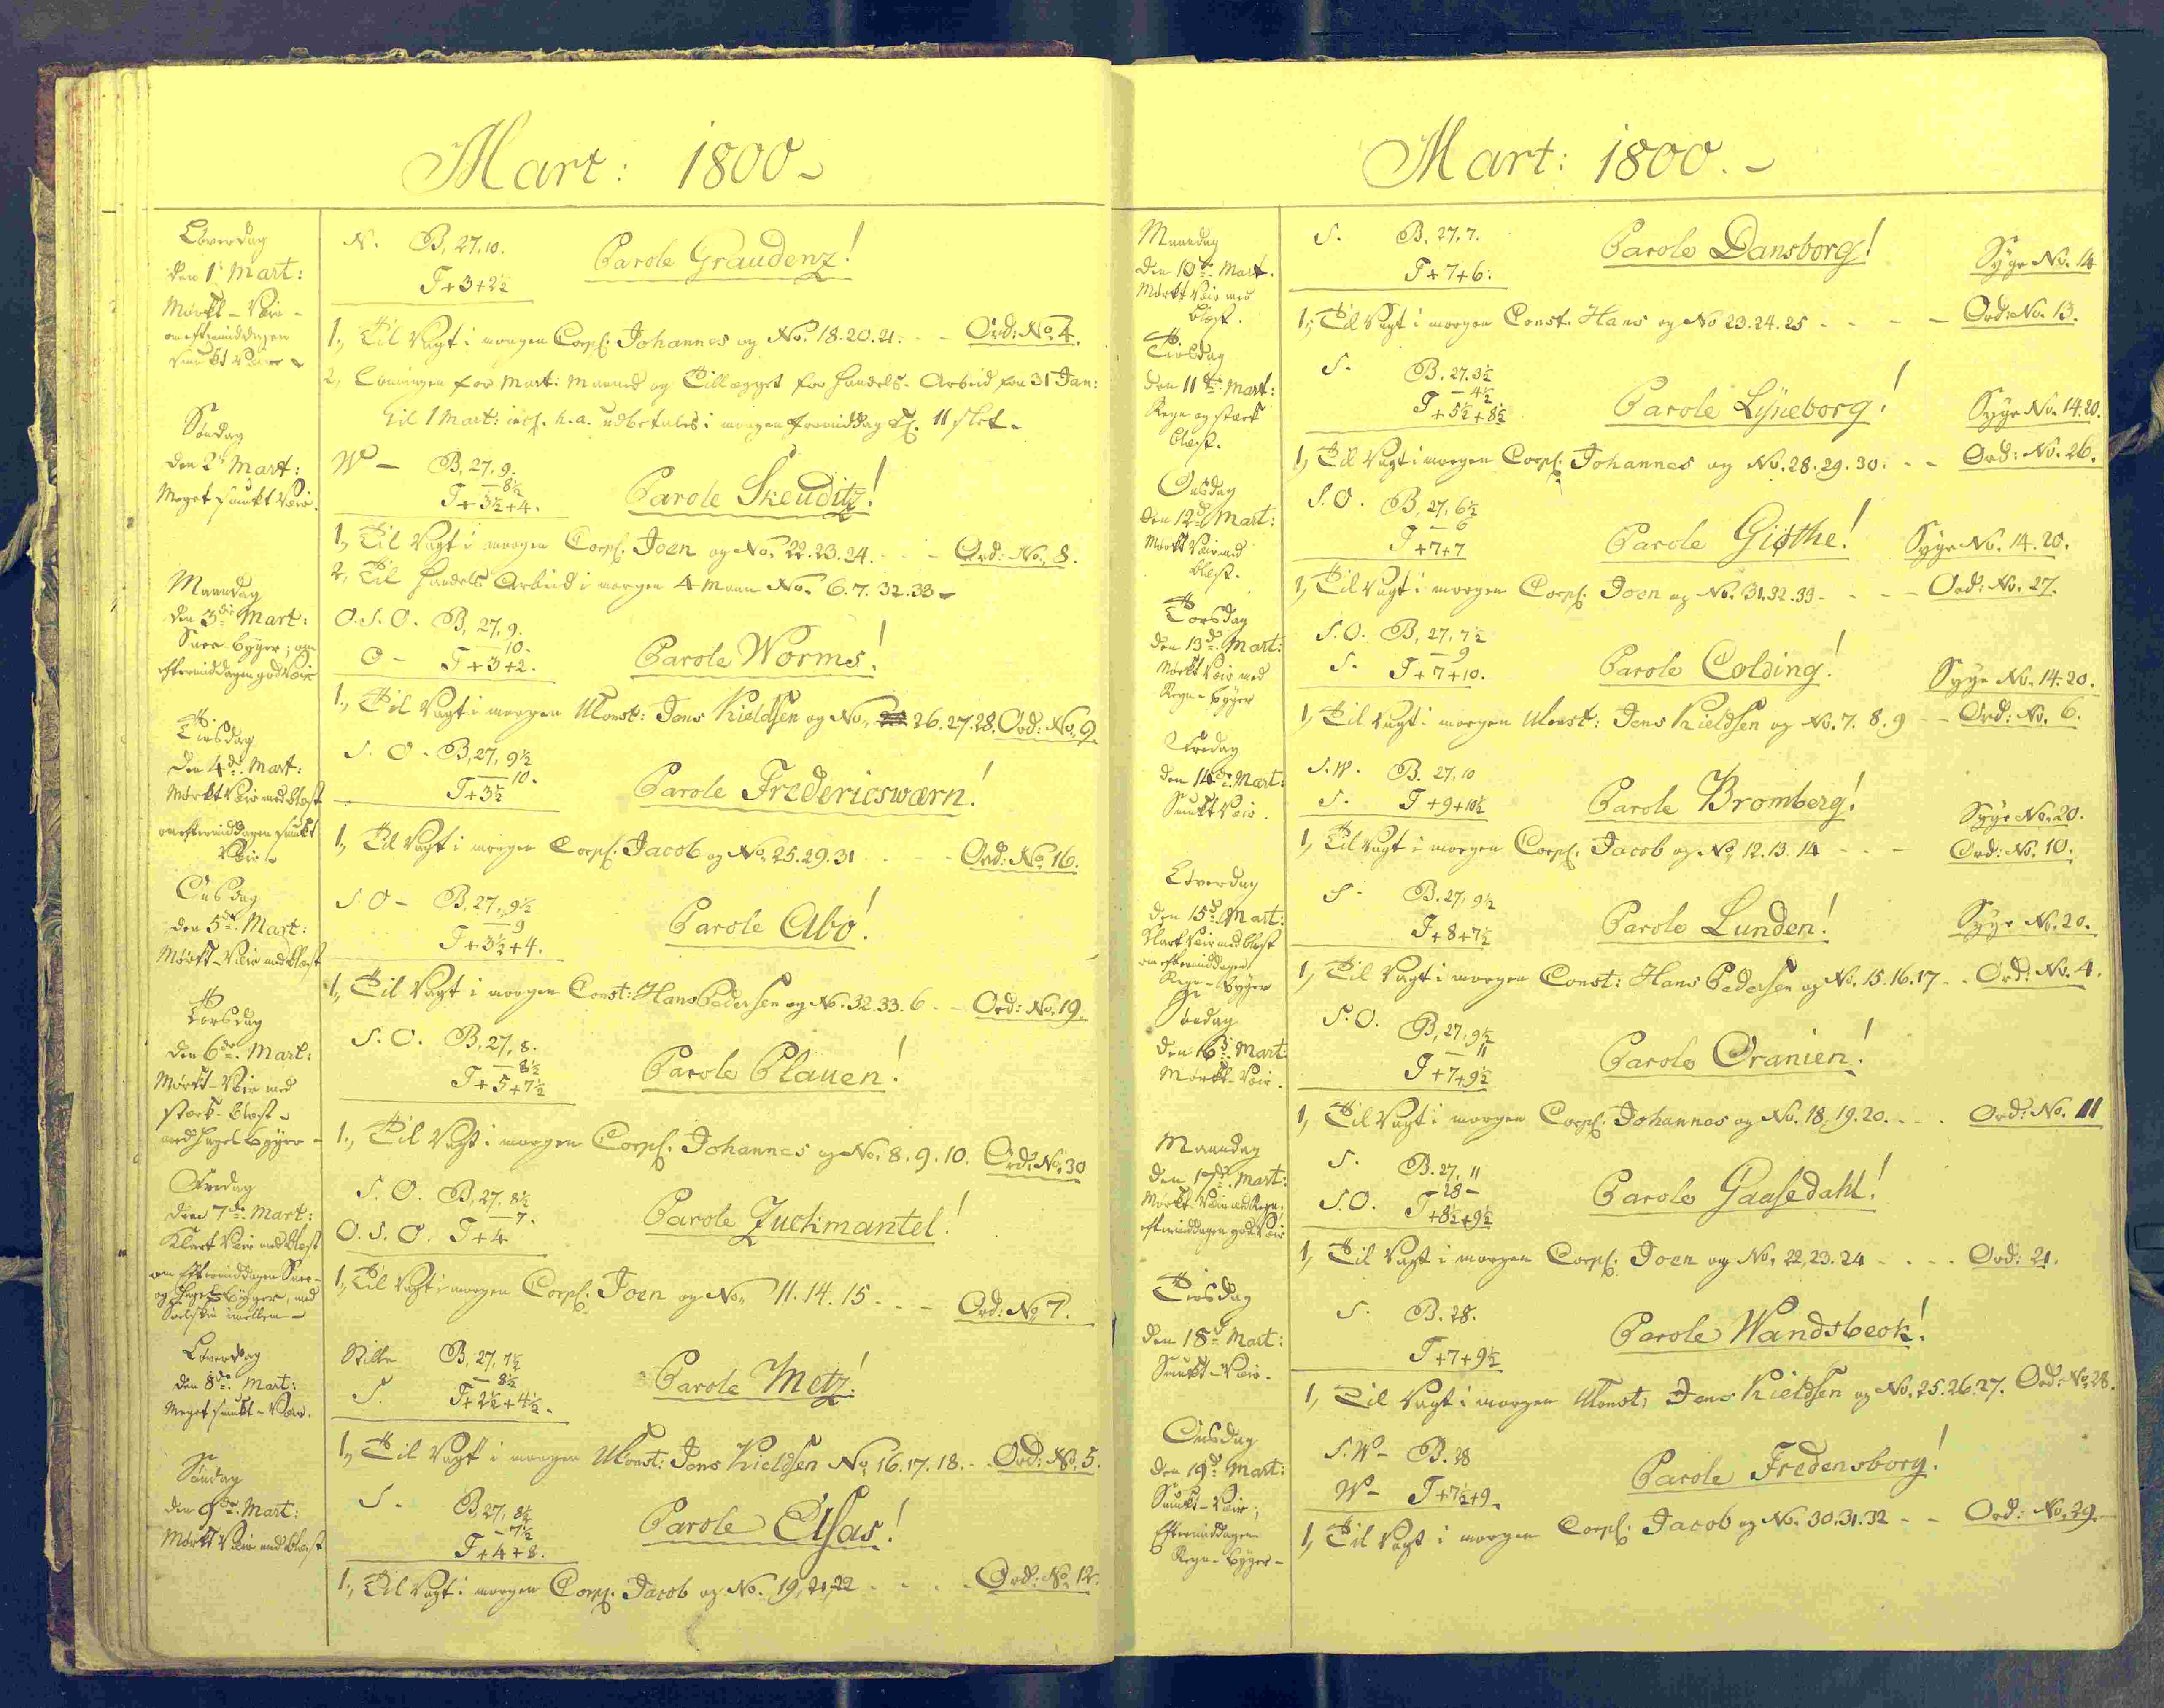 Mart: 1800
Löverdag
den 1t Mart:
Mørkt-Veir-
om eftermiddagen
smukt Veir
N. B, 27, 10.
T+3+2½
Parole Graudenz!
1, Til Vagt i morgen Corpl. Johannes og No. 18. 20. 21. - - Ord: No. 4.
2, Lönningen for Mart: Maaned og Tillægget for Handels-Arbeid fra 31 Jan:
til 1 Mart: incl. h. a. udbetales i morgen formiddag Kl. 11 slet.
Søndag
den 2d Mart:
Meget smukt Veir.
W - B, 27, 9.
- 8½
T+3½+4.
Parole Skeuditz!
1, Til Vagt i morgen Corpl. Joen og No. 22. 23. 24. - - Ord: No. 8.
2, Til Handels Arbeid i morgen 4 Mann No. 6. 7. 32. 33 -
Maandag
den 3die Mart:
Snee-byger; om
eftermiddagen godt Veir
O. S. O. B, 27, 9.
- 10.
O - T+3+2.
Parole Worms!
1, Til Vagt i morgen UConst: Jens Kieldsen og No. 26. 27. 28. Ord: No. 9
Tirsdag
den 4de Mart:
Mørkt Veir med Blæst
om eftermiddagen smukt
Veir
S. O - B, 27, 9½
- 10.
T+3½
Parole Fredericswærn!
1, Til Vagt i morgen Corpl. Jacob og No. 25. 29. 31 - - Ord: No. 16.
Onsdag
den 5de Mart:
Mørkt-Veir med Blæst
S. O - B, 27, 9½
- 9
T+3½+4.
Parole Abo!
1, Til Vagt i morgen Const: Hans Pedersen og No. 32. 33. 6 - - Ord: No. 19.
Torsdag
den 6de Mart:
Mørkt-Veir med
stærk-Blæst
med Hagel byger -
S. O. B, 27, 8.
- 8½
T+5+7½
Parole Plauen!
1, Til Vagt i morgen Corpl. Johannes og No. 8. 9. 10. Ord. No. 30
Fredag
den 7de Mart:
Klart Veir med Blæst
om Eftermiddagen Snee-
og Hagel-byger, med
Soelskin imellem -
S. O. B, 27, 8½
- 7.
O. S. O. T+4
Parole Zuckmantel!
1, Til Vagt i morgen Corpl. Joen og No. 11. 14. 15 - - - Ord: No. 7.
Löverdag
den 8de Mart:
Meget smukt-Veir.
Stille B, 27, 7½
- 8½
S. T+2½+4½.
Parole Metz!
1, Til Vagt i morgen UConst: Jens Kieldsen No. 16. 17. 18. - - Ord: No. 5.
Søndag
den 9de Mart:
Mørkt Veir med Blæst
S - B, 27, 8½
- 7½
T+4+8.
Parole Elsas!
1, Til Vagt i morgen Corpl. Jacob og No. 19, 21, 22 - - - Ord: No. 12.
Mart: 1800. -
Maandag
den 10de Mart.
Mørkt Veir med
blæst.
S. B. 27. 7.
T+7+6.
Parole Dansborg!
Syge No. 14
1, Til Vagt i morgen Const. Hans og No 23. 24. 25 - - - Ord: No. 13.
Tirsdag
den 11te Mart:
Regn og stærk
blæst.
S. B. 27. 3½
- 4½
T+5½+8½
Parole Lÿneborg!
Syge No. 14. 20.
1, Til Vagt i morgen Corpl. Johannes og No. 28. 29. 30. - - Ord: No. 26.
Onsdag
den 12d Mart:
Mørkt Veir med
blæst.
S. O. B, 27, 6½
- 6
T+7+7
Parole Giøthe!
Syge No. 14. 20.
1, Til Vagt i morgen Corpl. Joen og No. 31. 32. 33 - - - Ord: No. 27.
Torsdag
den 13d Mart:
Mørkt Veir med
Regn-byger
S. O. B, 27, 7½
- 9
S. T+7+10.
Parole Colding!
Syge No. 14. 20.
1, Til Vagt i morgen UConst: Jens Kieldsen og No. 7. 8. 9 - - Ord: No. 6.
Fredag
den 14de Mart:
Smukt Veir.
S. W. B. 27, 10
S. T+9+10½
Parole Bromberg!
Syge No. 20.
1, Til Vagt i morgen Corpl. Jacob og No. 12. 13. 14 - - - Ord: No. 10.
Löverdag
den 15d Mart:
Klart Veir med blæst
om eftermiddagen
Regn-byger
S - B. 27, 9½
T+8+7½
Parole Lunden!
Syge No. 20.
1, Til Vagt i morgen Const: Hans Pedersen og No. 15. 16. 17 - - Ord: No. 4.
Søndag
den 16d Mart:
Mørkt-Veir.
S. O. B, 27, 9½
- 11
T+7+9½
Parole Oranien!
1, Til Vagt i morgen Corpl. Johannes og No. 18. 19. 20. - - - Ord: No. 11
Maandag
den 17d Mart:
Mørkt-Veir med Regn,
eftermiddagen godt Veir
S. B. 27, 11
28 -
S. O. T+8½+9½
Parole Gaasedahl!
1, Til Vagt i morgen Corpl. Joen og No. 22, 23. 24 - - - - Ord: 21.
Tirsdag
den 18d Mart:
Smukt-Veir.
S. B. 28.
T+7+9½
Parole Wandsbeck!
1, Til Vagt i morgen UConst: Jens Kieldsen og No. 25. 26. 27. Ord: No. 28.
Onsdag
den 19d Mart:
Smukt-Veir;
Eftermiddagen
Regn-byger -
S. W - B. 28
W - T+7½+9.
Parole Fredensborg!
1, Til Vagt i morgen Corpl. Jacob og No. 30. 31. 32 - - Ord: No. 29.